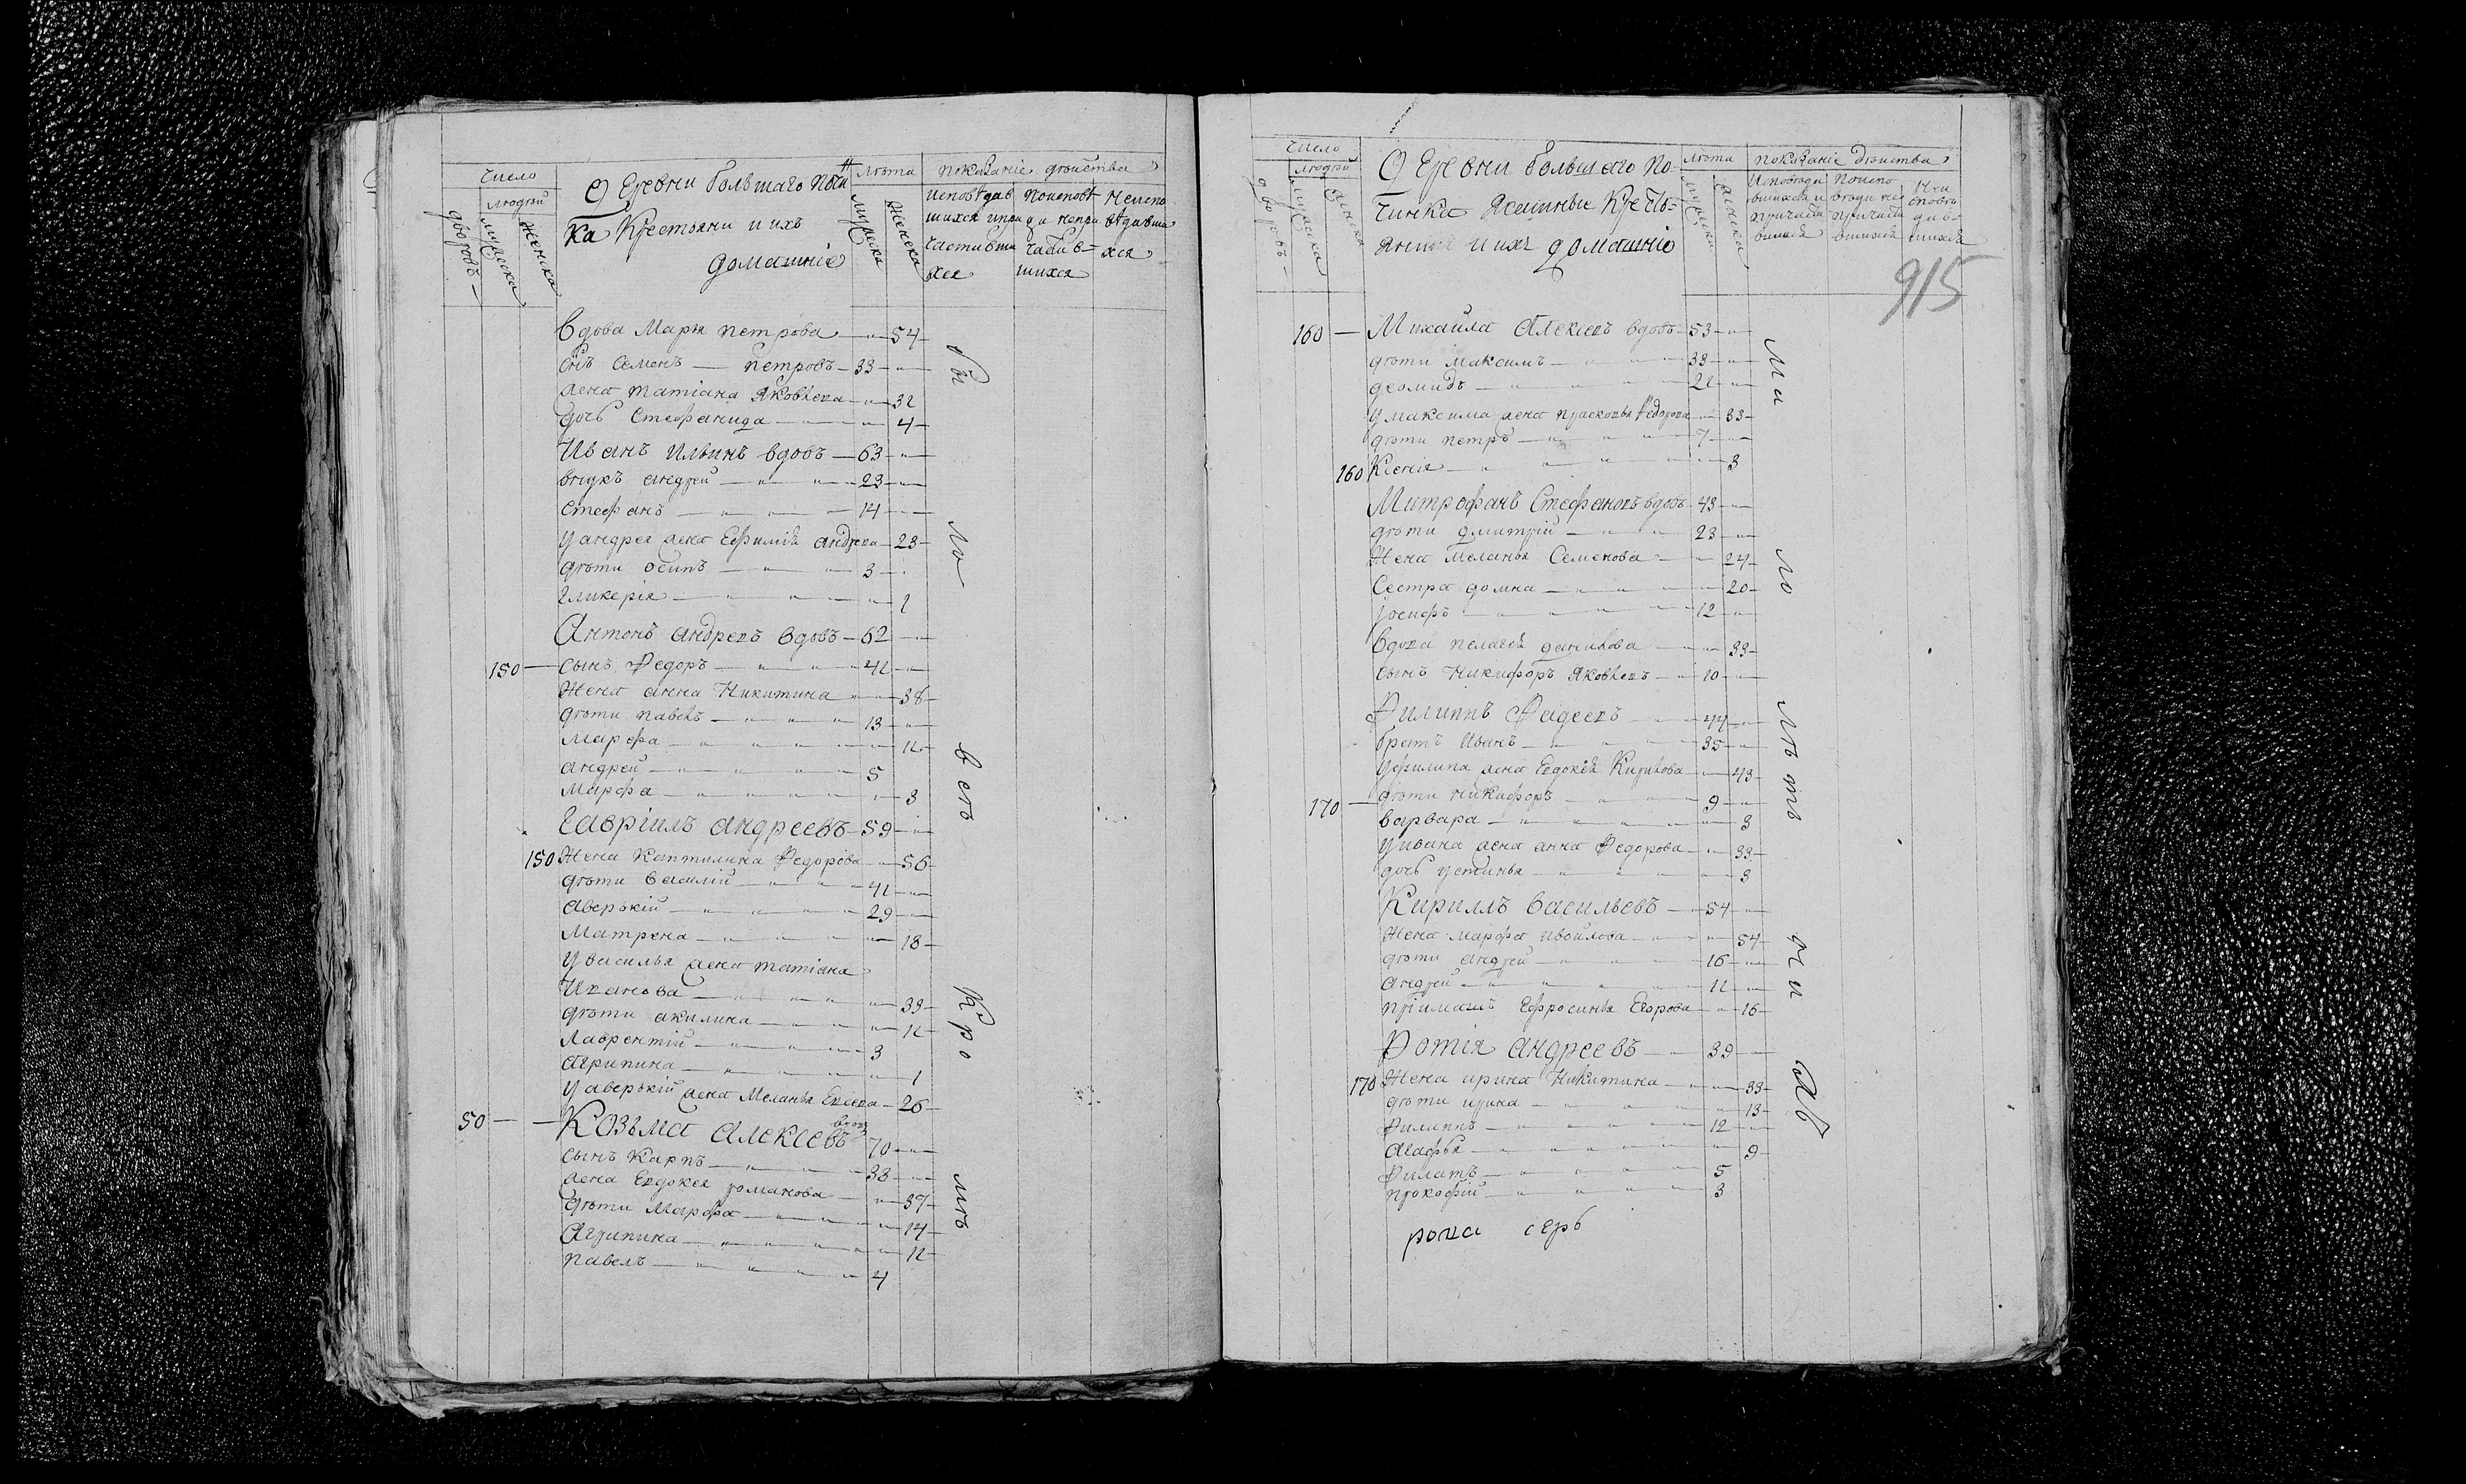 Число
людей
дворовъ
мужеска
женска
Деревни большаго почин
ка Крестьяни и ихъ
домашніе
лѣта
мужеска
женска
показаніе действа
исповѣдав
шихся и при
частивши
хся
поисповѣ
да непри
чащав-
шихся
Неиспо
вѣдавши
хся
Вдова Марья петрова — 54
Снъ Семенъ — петровъ — 33
жена татіана Яковлева — 32
дочь Стефанида — 4
Иванъ Ильинъ вдовъ — 63
внукъ андрей — 23
Стефанъ — 14
у андрея жена Ефимія андреева — 23
дѣти осипъ — 3
гликерія — 1
Антонъ андреевъ вдовъ — 62
150 — сынъ Федоръ — 42
Жена анна Никитина — 38
дѣти павелъ — 13
Марфа — 12
андрей — 5
Марфа — 3
Гавріилъ андреевъ — 59
150 Жена Каптилина Федорова — 56
дѣти василій — 42
аверькій — 29
Матрена — 18
у василья жена татіана
Иванова — 39
дѣти акилина — 12
Лаврентій — 3
агрипина — 1
у аверькій жена Меланья Евсева — 26
50 — Козьма алексіевъ вдовъ 70
сынъ Карпъ — 38
жена Евдокея романова — 37
дѣти Марфа — 14
Агрипина — 12
павелъ — 4
бы
ло
в сть
Кро
мѣ
Число
людей
дворовъ
мужеска
женска
Деревни большаго по-
чинка Ясашные Кресть-
яни и ихъ домашніе
лѣта
мужеска
женска
показаніе действа
Исповѣда
вшихся и
причасти
вшихся
поиспо
вѣда не
причасти
вшихся
Неи
сповѣ
дав-
шихся
915
160 — Михайла Алексіевъ вдовъ — 53
дѣти Максимъ — 33
деомидъ — 22
у максима жена прасковья Федорова — 33
дѣти петръ — 7
160 Ксенія — 3
Митрофанъ Стефановъ вдовъ — 43
дѣти дмитрій — 23
Жена Меланья Семенова — 24
Сестра домна — 20
іосифъ — 12
Вдова пелагея данилова — 33
сынъ Никифоръ Яковлевъ — 10
Филиппъ Фадеевъ — 44
братъ Иванъ — 35
у филипа жена Евдокея Кирилова — 43
170 — дѣти никифоръ — 9
варвара — 3
у ивана жена анна Федорова — 33
дочь устинья — 3
Кириллъ васильевъ — 54
Жена марфа ивойлова — 54
дѣти андрей — 16
андрей — 12
пріимышъ Ефросинья Егорова — 16
Фотія андреевъ — 39
170 Жена ирина Никитина — 33
дѣти ирина — 13
Филиппъ — 12
агафья — 9
Филатъ — 5
прокофій — 3
ма
ло
лѣтъ
ни
ропа серь